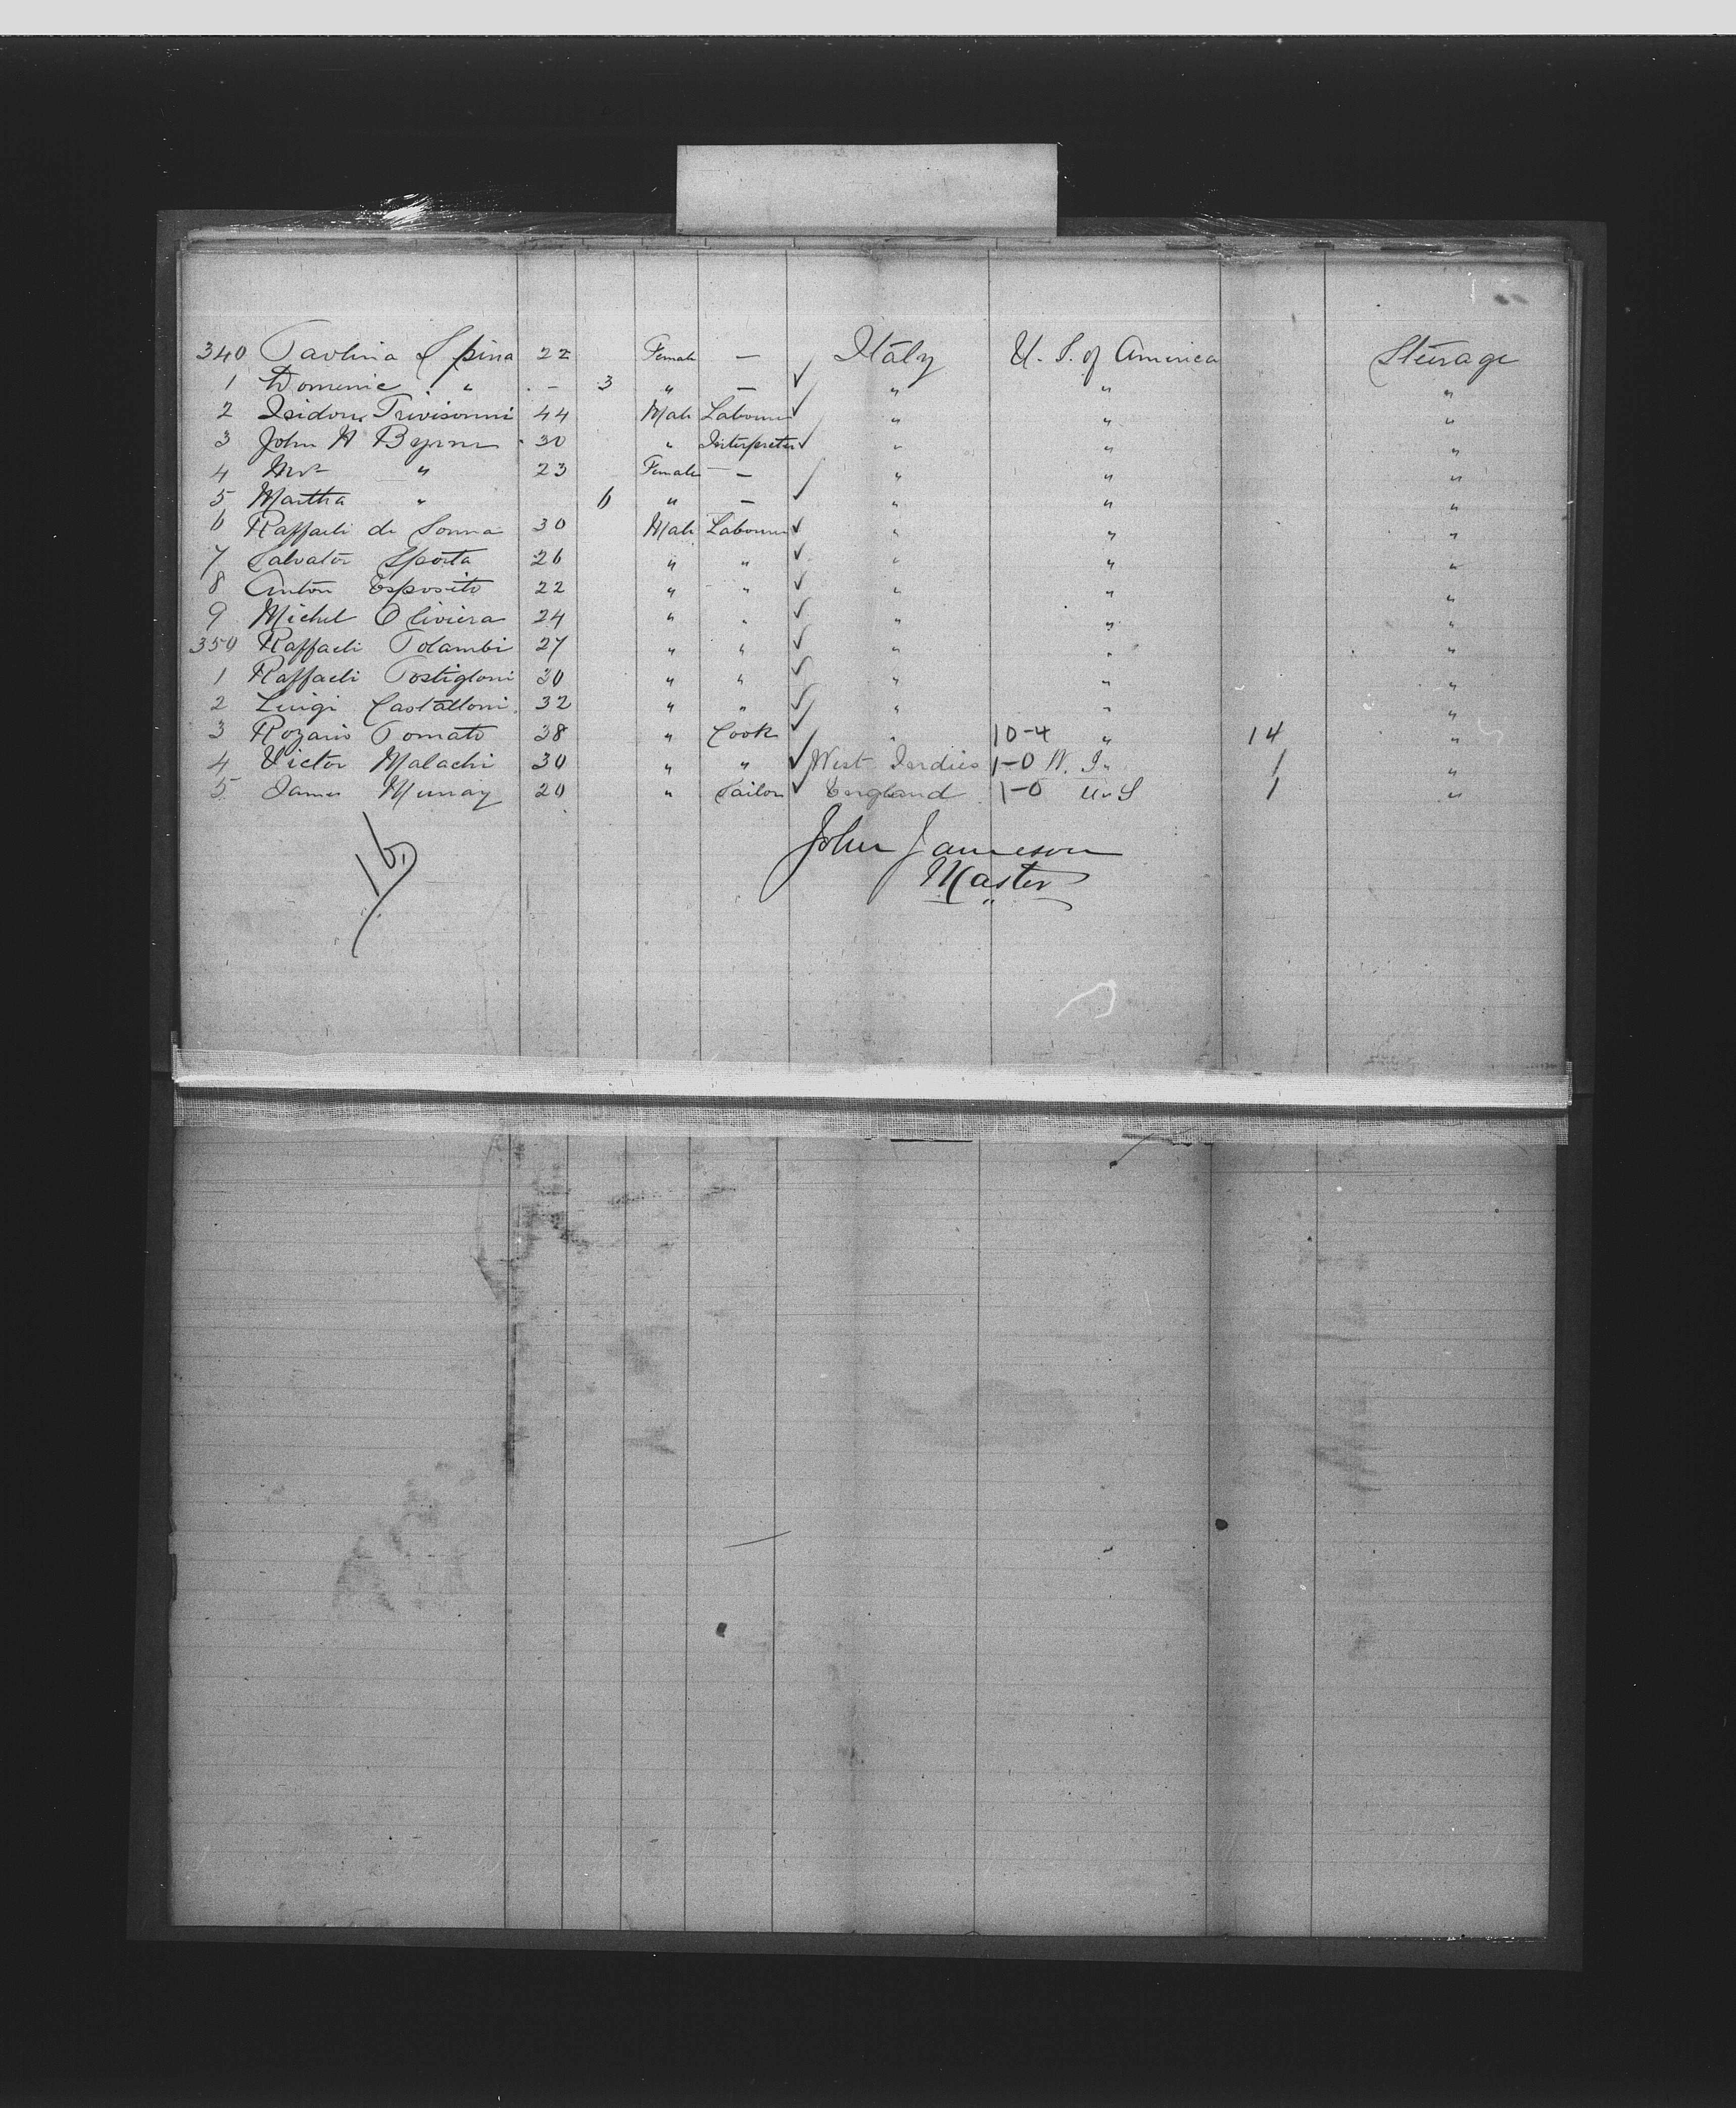 340 Paolina Spina 22 Female — Italy U. S. of America Steerage
1 Domenic " - 3 " — " " "
2 Isidoro Trivisonni 44 Male Labourer " " "
3 John H Byrne 30 " Interpreter " " "
4 Mrs " 23 Female — " " "
5 Martha " 6 " — " " "
6 Raffaeli de Sonna 30 Male Labourer " " "
7 Salvator Sporta 26 " " " " "
8 Anton Esposito 22 " " " " "
9 Michel Oliviera 24 " " " " "
350 Raffaeli Tolambi 27 " " " " "
1 Raffaeli Postigloni 30 " " " " "
2 Luigi Castalloni 32 " " " " "
3 Rozario Tomato 38 " Cook " 10-4 " 14 "
4 Victor Malachi 30 " " West Indies 1-0 W. I. 1 "
5 James Murray 20 " Tailor England 1-0 U.S 1 "
John Jameson
Master
16